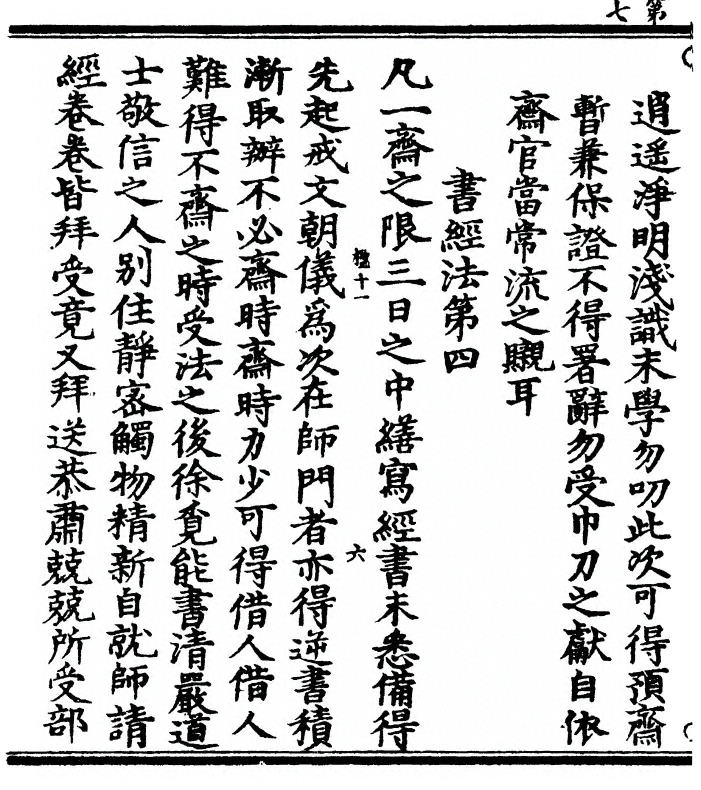 第七
逍遥淨明淺識未學勿叨此次可得預齋
暫兼保證不得署辭勿受巾刀之獻自依
齋官當常流之䞋耳
書經法第四
凡一齋之限三日之中繕寫經書未悉備得
先起戒文朝儀爲次在師門者亦得逆書積
十一
六
漸取辦不必齋時齋時力少可得借人借人
難得不齋之時受法之後徐覔能書清嚴道
士敬信之人別住靜密觸物精新自就師請
經卷卷皆拜受竟又拜送恭肅兢兢所受部